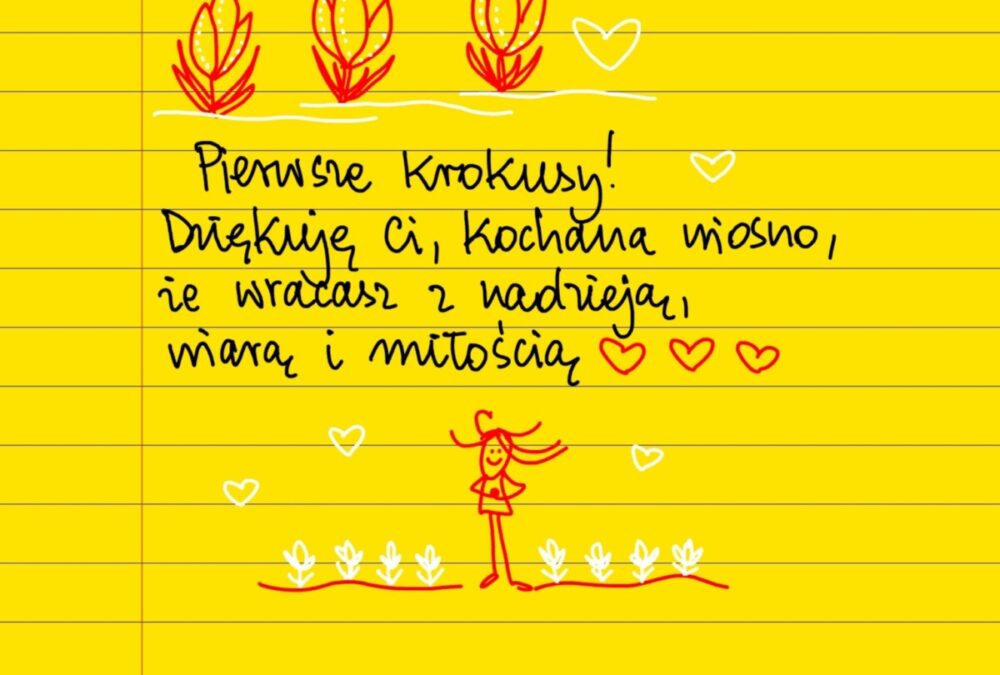 Pierwsze krokusy!
Dziękuję Ci, kochana wiosno,
że wracasz z nadzieją,
wiarą i miłością